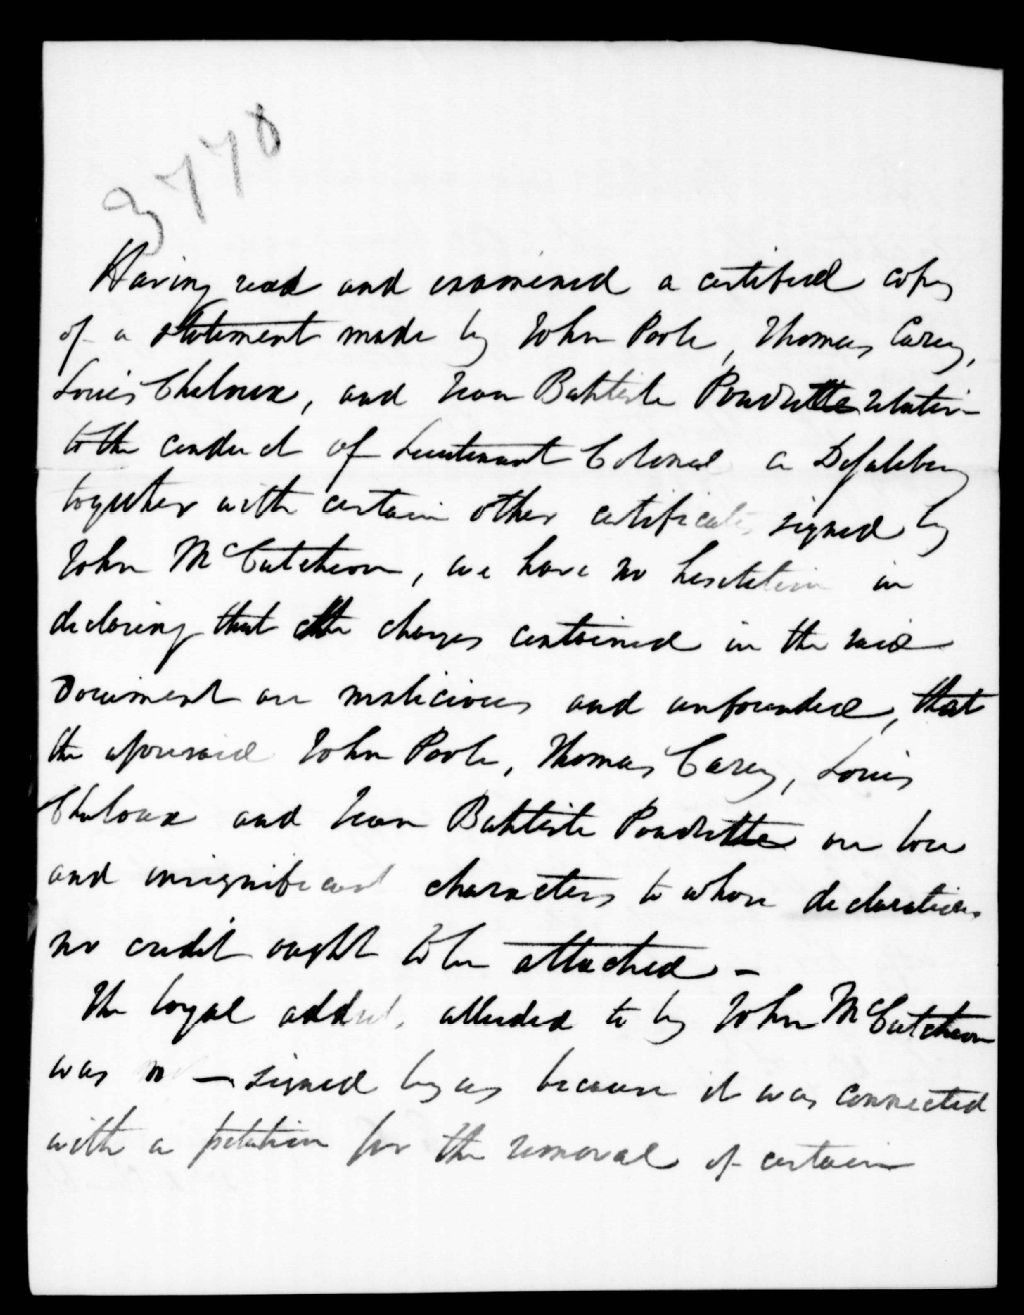 3770
Having read and examined a certified copy
of a statement made by John Poole, Thomas Carey,
Louis Cheloux, and Jean Baptiste Poudrette relative
to the conduct of Lieutenant Colonel
together with certain other certificates signed by
John McCutcheon, we have no hesitation in
declaring that the charges contained in the said
Document are malicious and unfounded, that
the aforesaid John Poole, Thomas Carey, Louis
Cheloux and Jean Baptiste Poudrette are low
and insignificant characters to whose declarations
no credit ought to be attached -
The loyal address alluded to by John McCutcheon
was not signed by us because it was connected
with a petition for the removal of certain